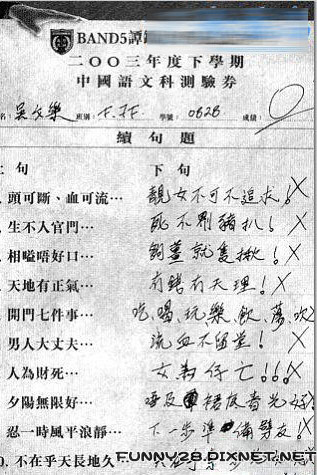 BAND5譚
二〇〇三年度下學期
中國語文科測驗券
名: 吳文樂 班別: F. 學號: 0628 成績: 0
續句題
上句 下句
頭可斷、血可流… 靚女不可不追求! X
生不入官門… 死不劏豬扒! X
相嗌唔好口… 劏薑就隻揪! X
天地有正氣… 有錢有天理! X
開門七件事… 吃、喝、玩、樂、飲、蕩、吹 X
男人大丈夫… 流血不留堂! X
人為財死… 女為仔亡!!! X
夕陽無限好… 唔及
忍一時風平浪靜… 下一步準備劈友! X
0. 不在乎天長地久
FUNNY28.PIXNET.NET